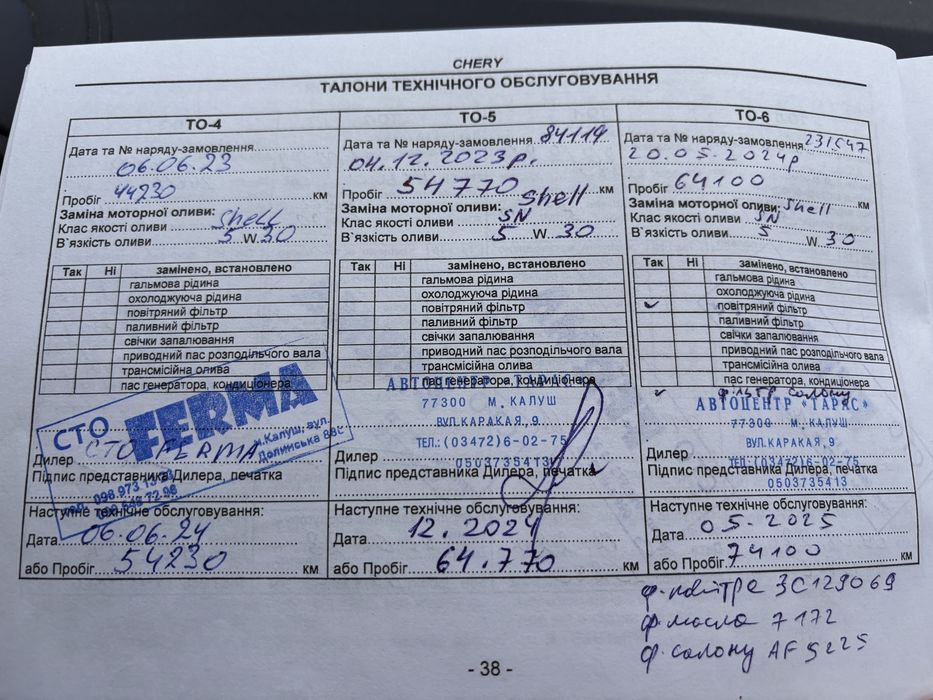 CHERY
ТАЛОНИ ТЕХНІЧНОГО ОБСЛУГОВУВАННЯ
ТО-4
Дата та № наряду-замовлення
06.06.23
Пробіг 44230 км
Заміна моторної оливи:
Клас якості оливи Shell
В`язкість оливи 5 W 30
Так Ні замінено, встановлено
гальмова рідина
охолоджуюча рідина
повітряний фільтр
паливний фільтр
свічки запалювання
приводний пас розподільчого вала
трансмісійна олива
пас генератора, кондиціонера
СТО FERMA
м.Калуш, вул.
Долинська
Дилер СТО FERMA
Підпис представника Дилера, печатка
Наступне технічне обслуговування:
Дата 06.06.24
або Пробіг 54230 км
ТО-5
Дата та № наряду-замовлення 84119
04.12.2023р.
Пробіг 54770 км
Заміна моторної оливи: Shell
Клас якості оливи SN
В`язкість оливи 5 W 30
Так Ні замінено, встановлено
гальмова рідина
охолоджуюча рідина
повітряний фільтр
паливний фільтр
свічки запалювання
приводний пас розподільчого вала
трансмісійна олива
пас генератора, кондиціонера
АВТОЦЕНТР
77300 М. КАЛУШ
ВУЛ.КАРАКАЯ,9
ТЕЛ.:(03472)6-02-75
Дилер
0503735413
Підпис представника Дилера, печатка
Наступне технічне обслуговування:
Дата 12.2024
або Пробіг 64.770 км
ТО-6
Дата та № наряду-замовлення
20.05.2024р
Пробіг 64100 км
Заміна моторної оливи: Shell
Клас якості оливи SN
В`язкість оливи 5 W 30
Так Ні замінено, встановлено
гальмова рідина
охолоджуюча рідина
повітряний фільтр
паливний фільтр
свічки запалювання
приводний пас розподільчого вала
трансмісійна олива
пас генератора, кондиціонера
фільтр салону
АВТОЦЕНТР «ТАРАС»
77300 М. КАЛУШ
ВУЛ.КАРАКАЯ,9
Дилер
ТЕЛ.:(03472)6-02-75
Підпис представника Дилера, печатка
0503735413
Наступне технічне обслуговування:
Дата 05.2025
або Пробіг 74100 км
ф. повітря ЗС129069
ф. масла 7172
ф. салону AF5225
- 38 -